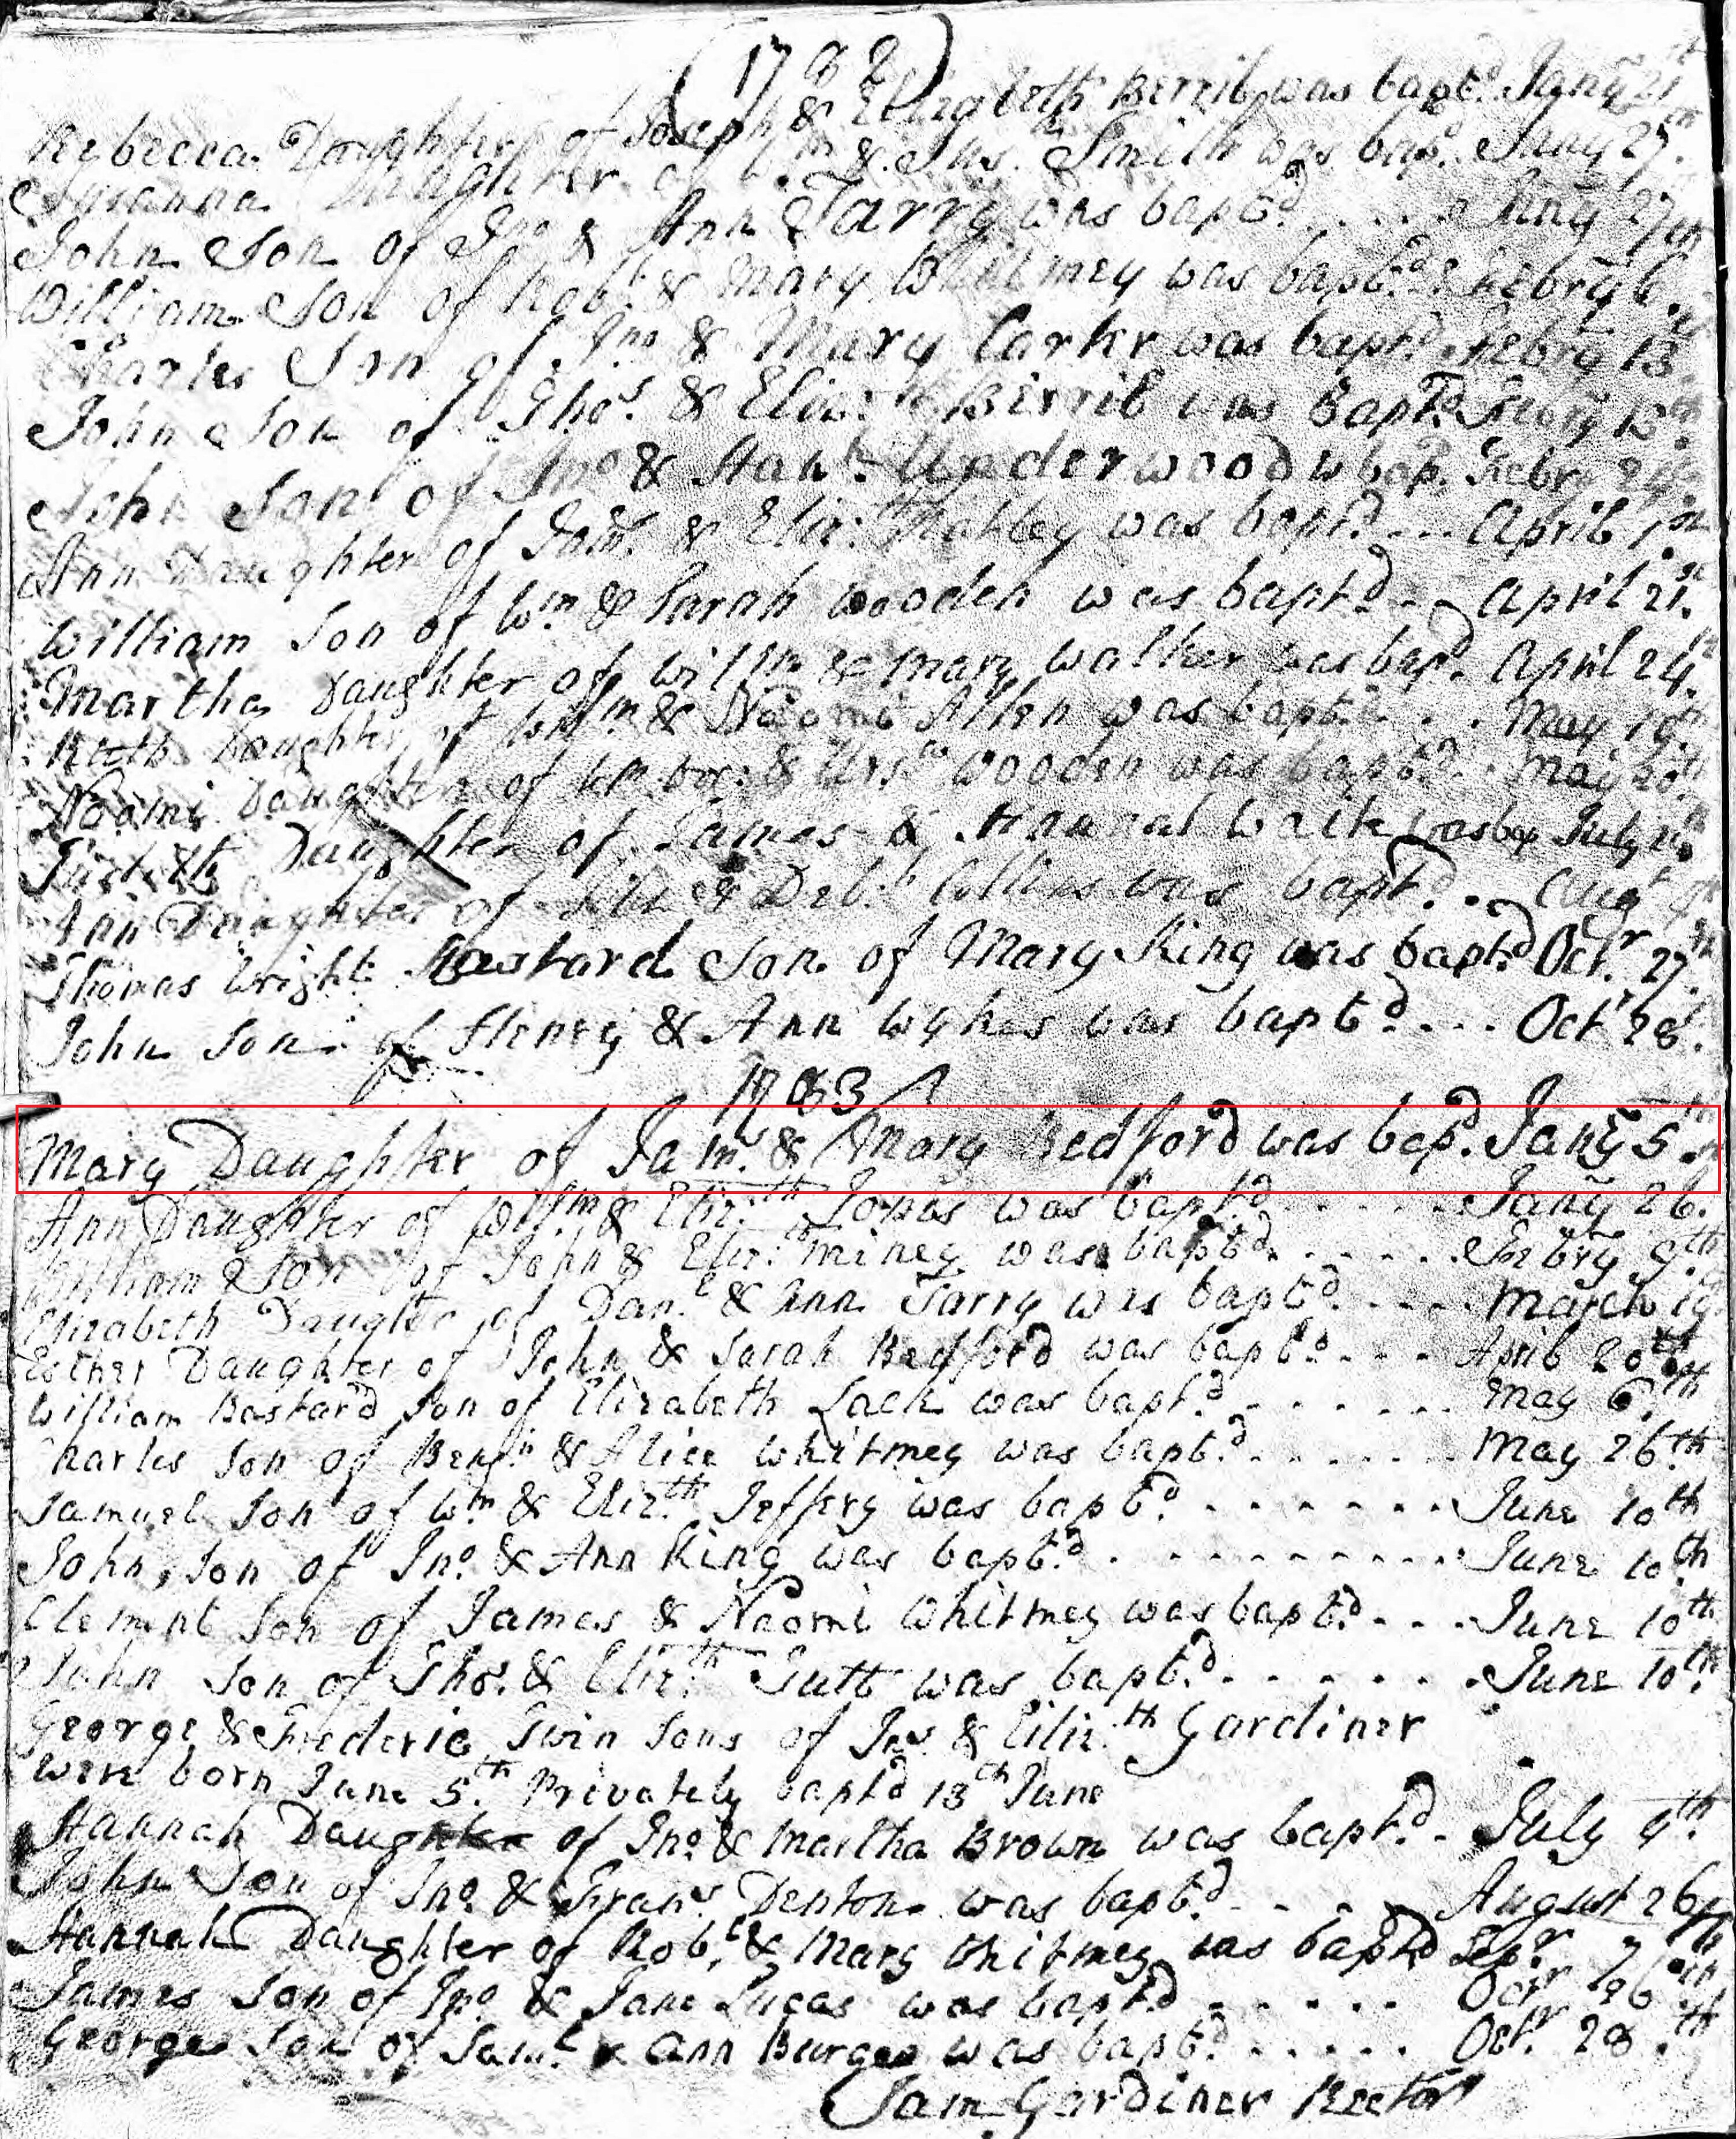 (1782)
Rebecca Daughter of Joseph & Elizabeth Berrib was bapt.d Jany 21st
Susanna Daughter of Wm & Sus. Smith was bap.d Jany 27th
John Son of Jno & Ann Tarry was bapt.d .... Jany 27th
William Son of Rob.t & Mary Whitmey was bapt.d Febry 6th
Charles Son of Jno & Mary Carkr was bapt.d Febry 13
John Son of Thos. & Eliz.th Berrib was Bapt.d Febry 18th
John Son of Jno & Han.h Underwood w bap. Febry 24th
Ann Daughter of & Eliz.th was bapt.d ... April 1st
William Son of Wm & Sarah Wooden was bapt.d -- April 21st
Martha Daughter of Willm & Mary Walker was bap.d April 24th
Ruth Daughter of Willm & Naomi Allen was bapt.d .. May 19th
Naomi Daughter of & Urs.la Wooden was bapt.d . May 20th
Daughter of James & Hannah Waite was bap July
Ann Daughter of & Deb.h Collins was bapt.d .. Augt
Thomas Wright Bastard Son of Mary King was bapt.d Octr. 27th
John Son of Henry & Ann Wykes was bapt.d ... Octr 28.
1783
Mary Daughter of Jam.s & Mary Bedford was bap.d Jany 5th
Ann Daughter of Willm & Eliz.th Jones was bapt.d ..... Jany 26.
William Son of John & Eliz.th Miney was bapt.d ..... Febry 9th
Elizabeth Daugter of Dan.l & Ann Tarry was bapt.d .... March 19
Esther Daughter of John & Sarah Bedford was bapt.d ... April 20th
William Bastard Son of Elizabeth Lack was bapt.d ...... May 6th
Charles Son of Benj.n & Alice Whitmey was bapt.d ...... May 26th
Samuel Son of Wm & Eliz.th Jeffery was bapt.d ....... June 10th
John, Son of Jno. & Ann King was bapt.d ......... June 10th
Clement Son of James & Naomi Whitmey was bapt.d ... June 10th
John Son of Thos. & Eliz.th Tutt was bapt.d ...... June 10th
George & Frederic Twin Sons of Jas & Eliz.th Gardiner
were born June 5th Privately bapt'd 13th June
Hannah Daughter of Jno. & Martha Brown was bapt.d - July 9th
John Son of Jno. & Frans. Denton was bapt.d .... August 26th
Hannah Daughter of Rob.t & Mary Whitmey was bapt'd Sepr. 7th
James Son of Jno & Jane Lucas was bapt.d ..... Octr 26th
George Son of Sam.l & Ann Burges was bapt.d ..... Octr. 28th
Sam Gardiner Rector